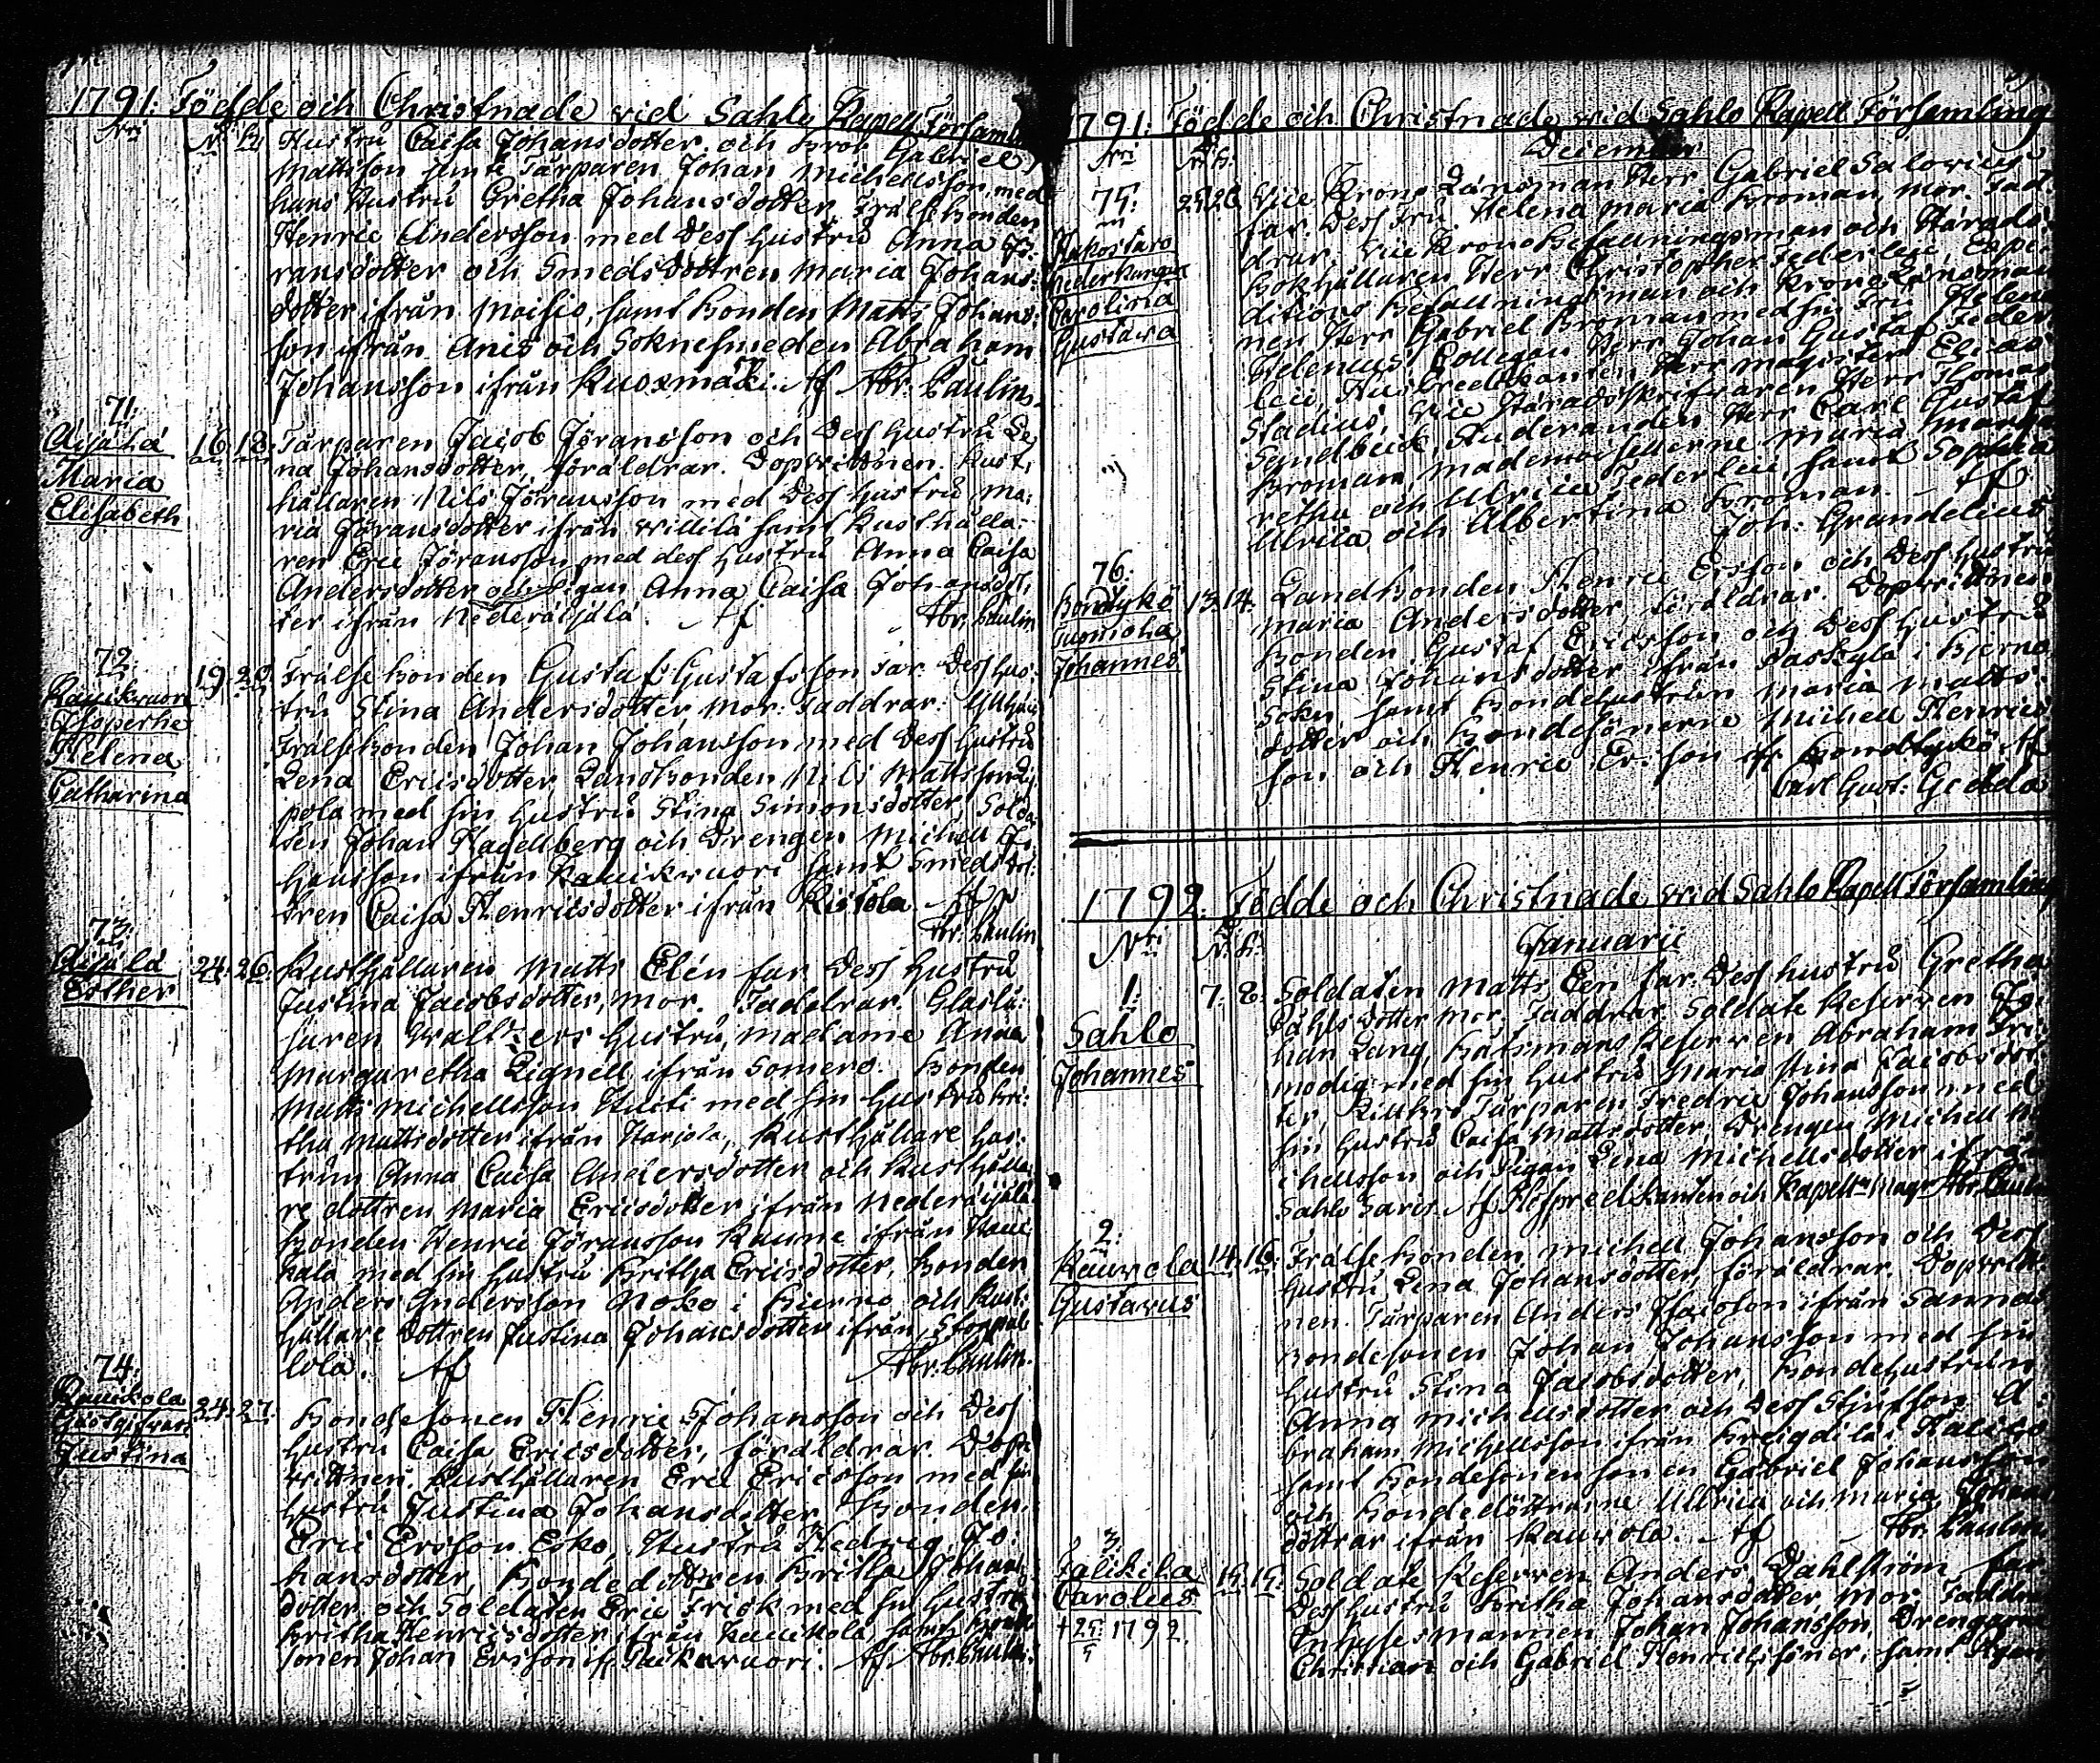 1791: Födde och Christnade vid Sahlo Kapell Församl
Nri N. Kr
Hustru Caisa Johansdotter och Bror Gabriel
Mattsson jemte Tårparen Johan Michellsson med
hans Hustru Gretha Johansdotter Frälsebonden
Henric Andersson med Dess hustru Anna Jö:
ransdotter och Smedsdottren Maria Johans:
dotter ifrån Moisio, samt Bonden Matts Johans:
son ifrån Anis och Soknesmeden Abraham
Johansson ifrån Kuosmäki. Af Abr: Paulin.
71.
Äijälä
Maria
Elisabeth
16. 18.
Tårparen Jacob Jöransson och Dess hustru Le
na Johansdotter, föräldrar. Dopvittnen. Rust:
hållaren Nils Jöransson med Dess hustru Ma:
ria Jöransdotter ifrån Willilä samt Rusthålla:
ren Eric Jöransson med dess hustru Anna Caisa
Andersdotter och Pigan Anna Caisa Johansdot:
ter ifrån Nederäijälä. Af Abr: Paulin
72.
Kaukvuori
Helena
Catharina
19. 20.
Frälse bonden Gustaf Gustafsson Far. Dess hus:
tru Stina Andersdotter, Mor. Faddrar:
Frälsebonden Johan Johansson med Dess hustru
Lena Ericsdotter Landbonden Nils Mattsson
pola med sin hustru Stina Simonsdotter Solda
ten Johan Hagelberg och Drengen Michell Jo
hansson ifrån Kaukvuori samt Smedsdot:
tren Caisa Henricsdotter ifrån Ristola Af
Abr: Paulin
73.
Äijälä
Esther
24. 26.
Rusthållaren Matts Elén far Dess hustru
Justina Jacobsdotter, Mor. Faddrar. Glasbl:
saren Waltzers hustru, Madame Anna
Margaretha Lignell, ifrån Somero. Bonden
Matts Michellsson Uuiti med sin hustru Bri:
tha Mattsdotter ifrån Harjola, Rusthållare hus:
trun Anna Caisa Andersdotter och Rusthålla
re dottren Maria Ericsdotter ifrån Nederäijälä
Bonden Henric Jöransson Raune ifrån Hau
kala med sin hustru Britha Ericsdotter, Bonden
Anders Andersson Noko i Bierno och Rust:
hållare dottren Justina Johansdotter ifrån
lola. Af Abr: Paulin.
74.
Kaukola
Justina
24. 27.
Bondesonen Henric Johansson och Dess
hustru Caisa Ericsdotter, föräldrar. Dop
vittnen. Rusthållaren Eric Ericsson med sin
hustru Justina Johansdotter Bonden
Eric Ersson Esko, Hustru Hedvig Jo:
hansdotter, Bondedottren Britha Johans
dotter och Soldaten Eric Frisk med sin hustru
Britha Henricsdotter ifrån Kaukola, samt Bonde
sonen Johan Ersson ifr Kaukvuori. Af Abr: Paulin.
1791: Födde och Christnade vid Sahlo Kapell Församling
Nri N. Kr.
December
75.
Hakostaro
Nederkungla
Carolina
Gustava
25. 26.
Vice Krono Länsman Herr Gabriel Salovius
far. Dess Fru Helena Maria Broman, Mor. Fad:
drar. Vice Krono Befallningsman och Härads:
bokhållaren Herr Christopher Federley, Expe
ditions Befallningsman och Krono Länsman
nen Herr Gabriel Broman med sin Fru Helena
Helenius, Collegan Herr Johan Gustaf Feder
leii, Huspredikanten Herr Magister Elias
Stadius, Vice Häradsskrifvaren Herr Thomas
Sundbeck, Studeranden Herr Carl Gustaf
Broman, Mademoisellerne Maria Marga
retha och Ulrica Federleii samt Sophia
Ulrica och Albertina Broman. Af
Joh: Grandelius
76.
Bondtykö
Tuomola
Johannes
13. 14.
Landbonden Henric Ersson och Dess hustru
Maria Andersdotter, föräldrar. Dopvittnen
Bonden Gustaf Ericsson och Dess hustru
Stina Johansdotter ifrån Paskylä i Bjerno
Sokn, samt Bondehustrun Maria Matts:
dotter och Bondesönerne Michell Henrics
son och Henric Ersson ifr Bondtykö. Af
Carl Gust: Gedda
1792. Födde och Christnade vid Sahlo Kapell Församling
Nri N. Kr.
Januarii
1.
Sahlo
Johannes
7. 8.
Soldaten Matts Een far. Dess hustru Gretha
Påhlsdotter Mor. Faddrar. Soldate Reserven Jo:
han Lang, Båtsmans Reserven Abraham Fri
modig med sin hustru Maria Stina Jacobsdot
ter, Tårparen Fredric Johansson med
sin hustru Caisa Mattsdotter Drengen Michell M
ichellsson och Pigan Lena Michellsdotter ifrån
Sahlo Saris. Af Huspredikanten och Kapell: Mag: Abr: Paulin
2.
Kauvola
Gustavus
14. 16.
Frälse bonden Michell Johansson och Dess
hustru Lena Johansdotter, föräldrar. Dopvitt:
nen. Tårparen Anders Jacobson ifrån Sannas
Bondesonen Johan Johansson med sin
hustru Stina Jacobsdotter, Bondehustrun
Anna Michellsdotter och Dess Stjufson A:
braham Michellsson ifrån
samt Bondesonen sonen Gabriel Johansson
och Bondedöttrarne Ulrica och Maria Johans
döttrar ifrån Kauvola. Af Abr: Paulin
3.
Talikila
Carolus
† 25 1792.
15. 15.
Soldate Reserven Anders Dahlström far.
Dess hustru Britha Johansdotter Mor. Faddr
Inhysesmannen Johan Johansson, Drengarne
Christian och Gabriel Henrichssöner, samt Pigan